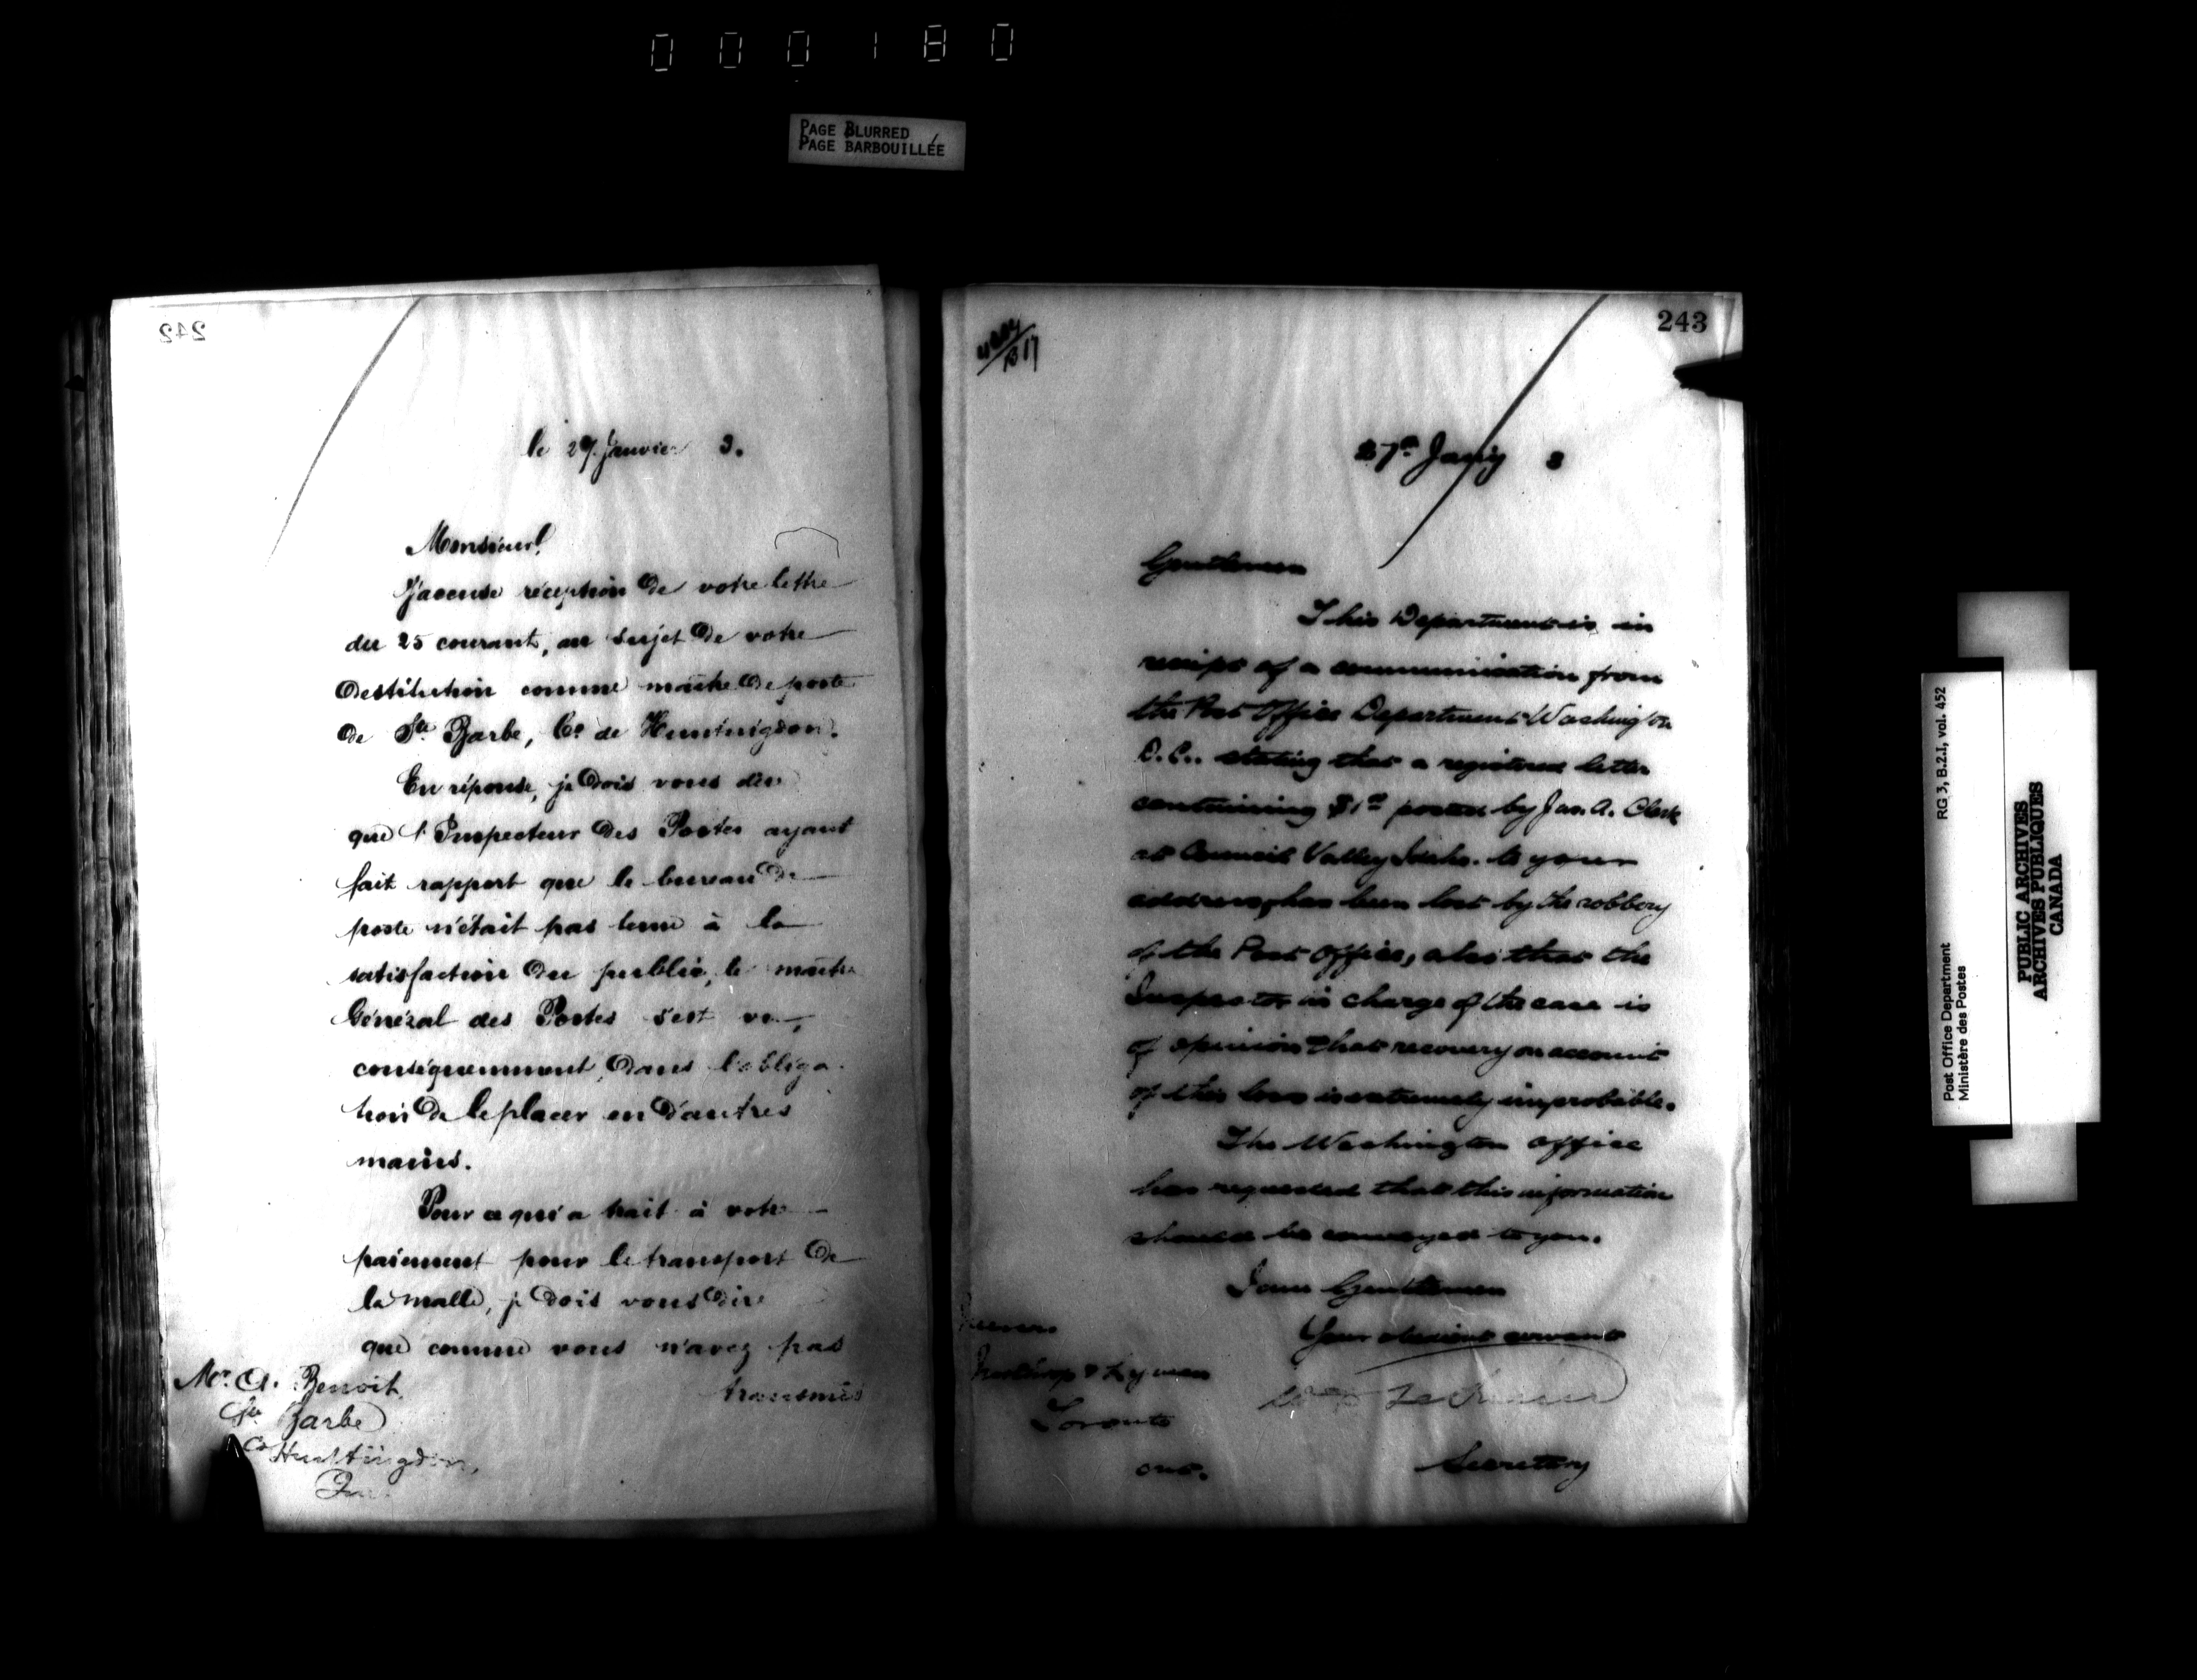 000180
PAGE BLURRED
PAGE BARBOUILLÉE
242
le 27 Janvier 3.
Monsieur,
J'accuse réception de votre lettre
du 25 courant, au sujet de votre
destitution comme maître de poste
de Ste Barbe, Co. de Huntingdon.
En réponse, je dois vous dire
que l'Inspecteur des Postes ayant
fait rapport que le bureau de
poste n'était pas tenu à la
satisfaction du public, le maître
Général des Postes s'est vu,
conséquemment, dans l'obliga-
tion de le placer en d'autres
mains.
Pour ce qui a trait à votre
paiement pour le transport de
la malle, je dois vous dire
que comme vous n'avez pas
transmis
Mr. A. Benoit,
Ste Barbe
Co Huntingdon,
Que.
243
27th Jany 3
Gentlemen
This Department is in
receipt of a communication from
the Post Office Department Washington
D.C., stating that a registered letter
containing $1.00 posted by Jas. A. Clark
at Council Valley Idaho. to your
address, has been lost by the robbery
of the Post Office, also that the
Inspector in charge of the case is
of opinion that recovery on account
of this loss is extremely improbable.
The Washington office
has requested that this information
should be conveyed to you.
I am Gentlemen
Your obedient servant
Secretary
Messrs
Northrop & Lyman
Toronto
Ont.
Post Office Department
Ministère des Postes
RG 3, B.2.I, vol. 452
PUBLIC ARCHIVES
ARCHIVES PUBLIQUES
CANADA